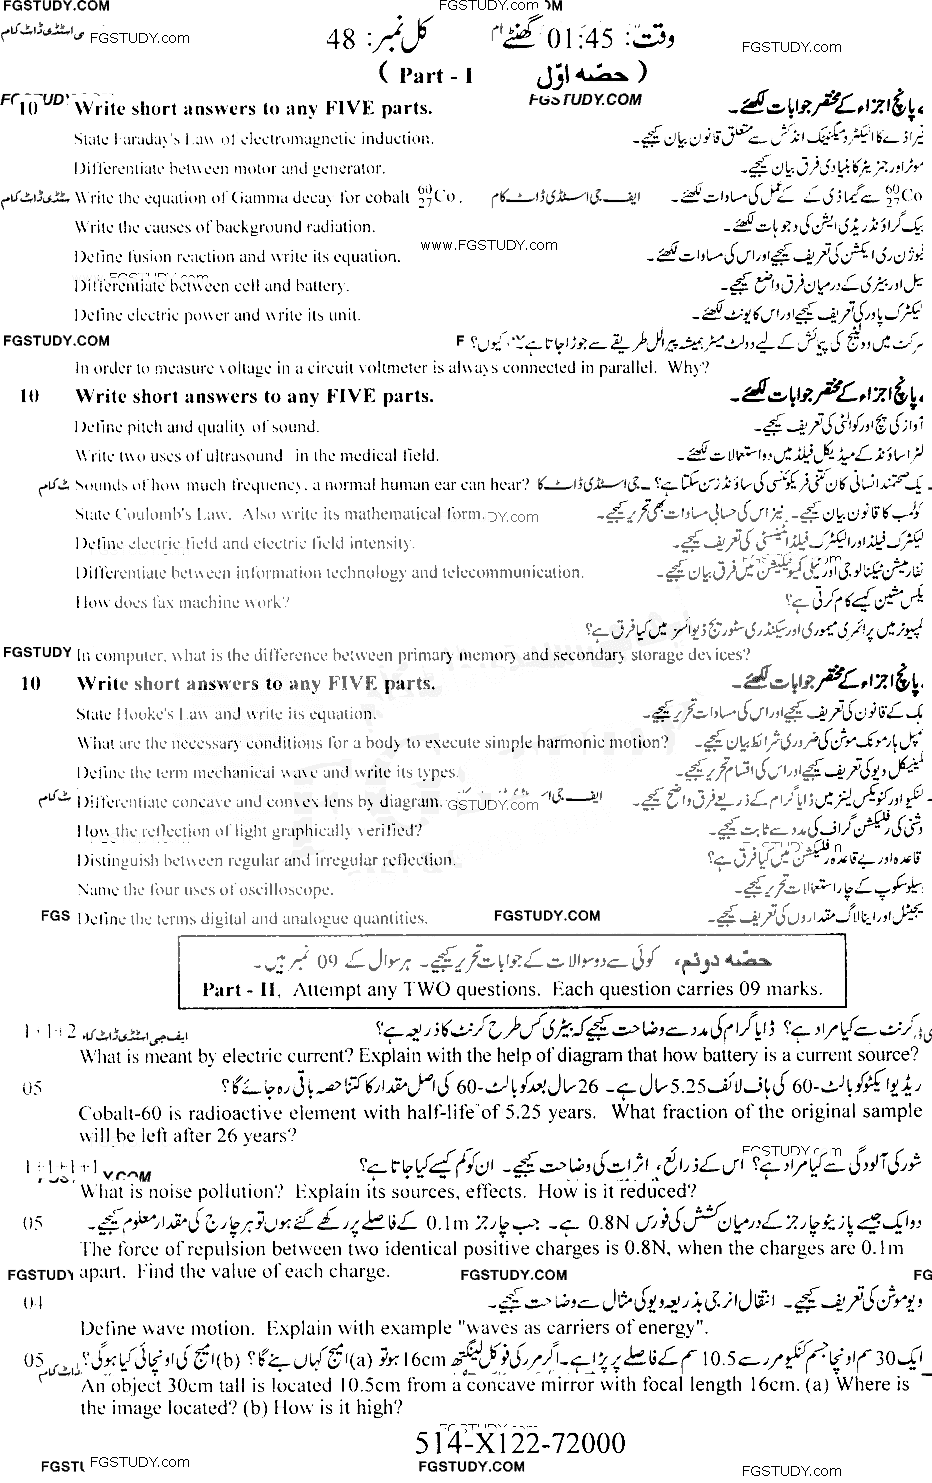 FGSTUDY.COM FGSTUDY.com OM
ی اسٹڈی ڈاٹ کام FGSTUDY.com کل نمبر: 48 وقت: 01:45 گھنٹے FGSTUDY.com
( Part - I حصہ اوّل )
FGSTUDY.COM
10 Write short answers to any FIVE parts. پانچ اجزاء کے مختصر جوابات لکھئے۔
State Faraday's Law of electromagnetic induction. کا الیکٹرومیگنیٹک انڈکشن سے متعلق قانون بیان کیجیے۔
Differentiate between motor and generator. موٹر اور جنریٹر کا بنیادی فرق بیان کیجیے۔
Write the equation of Gamma decay for cobalt ⁶⁰₂₇Co. ایف جی اسٹڈی ڈاٹ کام ⁶⁰₂₇Co سے گیما ڈی کے عمل کی مساوات لکھئے۔
Write the causes of background radiation. بیک گراؤنڈ ریڈی ایشن کی وجوہات لکھئے۔
www.FGSTUDY.com
Define fusion reaction and write its equation. فیوژن ری ایکشن کی تعریف کیجیے اور اس کی مساوات لکھئے۔
FGSTUDY.com
Differentiate between cell and battery. سیل اور بیٹری کے درمیان فرق واضح کیجیے۔
Define electric power and write its unit. لیکٹرک پاور کی تعریف کیجیے اور اس کا یونٹ لکھئے۔
FGSTUDY.COM F سرکٹ میں وولٹیج کی پیمائش کے لیے وولٹ میٹر ہمیشہ پیرالل طریقے سے جوڑا جاتا ہے کیوں؟
In order to measure voltage in a circuit voltmeter is always connected in parallel. Why?
10 Write short answers to any FIVE parts. پانچ اجزاء کے مختصر جوابات لکھئے۔
Define pitch and quality of sound. آواز کی پچ اور کوالٹی کی تعریف کیجیے۔
Write two uses of ultrasound in the medical field. لٹراساؤنڈ کے میڈیکل فیلڈ میں دو استعمالات لکھئے۔
ٹ کام Sounds of how much frequency, a normal human ear can hear? جی اسٹڈی ڈاٹ کا یک صحتمند انسانی کان کتنی فریکوئنسی کی ساؤنڈز سن سکتا ہے؟
State Coulomb's Law. Also write its mathematical form. DY.com کولمب کا قانون بیان کیجیے۔ نیز اس کی حسابی مساوات بھی تحریر کیجیے۔
Define electric field and electric field intensity. لیکٹرک فیلڈ اور الیکٹرک فیلڈ انٹینسٹی کی تعریف کیجیے۔
Differentiate between information technology and telecommunication. نفارمیشن ٹیکنالوجی اور ٹیلی کمیونیکیشن میں فرق بیان کیجیے۔
How does fax machine work? یکس مشین کیسے کام کرتی ہے؟
کمپیوٹر میں پرائمری میموری اور سیکنڈری سٹوریج ڈیوائسز میں کیا فرق ہے؟
FGSTUDY In computer, what is the difference between primary memory and secondary storage devices?
10 Write short answers to any FIVE parts. پانچ اجزاء کے مختصر جوابات لکھئے۔
State Hooke's Law and write its equation. ہک کے قانون کی تعریف کیجیے اور اس کی مساوات تحریر کیجیے۔
What are the necessary conditions for a body to execute simple harmonic motion? مپل ہارمونک موشن کی ضروری شرائط بیان کیجیے۔
Define the term mechanical wave and write its types. مکینیکل ویو کی تعریف کیجیے اور اس کی اقسام تحریر کیجیے۔
ٹ کام Differentiate concave and convex lens by diagram. GSTUDY.com ایف جی ا نکیو اور کنویکس لینز میں ڈایاگرام کے ذریعے فرق واضح کیجیے۔
How the reflection of light graphically verified? روشنی کی رفلیکشن گراف کی مدد سے ثابت کیجیے۔
Distinguish between regular and irregular reflection. قاعدہ اور بے قاعدہ رفلیکشن میں کیا فرق ہے؟
Name the four uses of oscilloscope. سیلوسکوپ کے چار استعمالات تحریر کیجیے۔
FGS Define the terms digital and analogue quantities. FGSTUDY.COM یجیٹل اور اینالاگ مقداروں کی تعریف کیجیے۔
حصہ دوئم، کوئی سے دو سوالات کے جوابات تحریر کیجیے۔ ہر سوال کے 09 نمبر ہیں۔
Part - II, Attempt any TWO questions. Each question carries 09 marks.
1+1+2 ایف جی اسٹڈی ڈاٹ کا کرنٹ سے کیا مراد ہے؟ ڈایاگرام کی مدد سے وضاحت کیجیے کہ بیٹری کس طرح کرنٹ کا ذریعہ ہے؟
What is meant by electric current? Explain with the help of diagram that how battery is a current source?
05 ریڈیو ایکٹو کوبالٹ-60 کی ہاف لائف 5.25 سال ہے۔ 26 سال بعد کوبالٹ-60 کی اصل مقدار کا کتنا حصہ باقی رہ جائے گا؟
Cobalt-60 is radioactive element with half-life of 5.25 years. What fraction of the original sample
will be left after 26 years?
1+1+1+1 Y.COM شور کی آلودگی سے کیا مراد ہے؟ اس کے ذرائع، اثرات کی وضاحت کیجیے۔ ان کو کم کیسے کیا جاتا ہے؟
What is noise pollution? Explain its sources, effects. How is it reduced?
05 دو ایک جیسے پازیٹو چارجز کے درمیان کشش کی فورس 0.8N ہے۔ جب چارجز 0.1m کے فاصلے پر رکھے گئے ہوں تو ہر چارج کی مقدار معلوم کیجیے۔
The force of repulsion between two identical positive charges is 0.8N, when the charges are 0.1m
FGSTUDY apart. Find the value of each charge. FGSTUDY.COM FG
04 ویو موشن کی تعریف کیجیے۔ انتقال انرجی بذریعہ ویو کی مثال سے وضاحت کیجیے۔
Define wave motion. Explain with example "waves as carriers of energy".
05 ایک 30 سم اونچا جسم کنکیو مرر سے 10.5 سم کے فاصلے پر پڑا ہے۔ اگر مرر کی فوکل لینگتھ 16cm ہو تو (a) امیج کہاں بنے گا؟ (b) امیج کی اونچائی کیا ہوگی؟
An object 30cm tall is located 10.5cm from a concave mirror with focal length 16cm. (a) Where is
the image located? (b) How is it high?
514-X122-72000
FGSTU FGSTUDY.com FGSTUDY.COM FGSTUDY.com